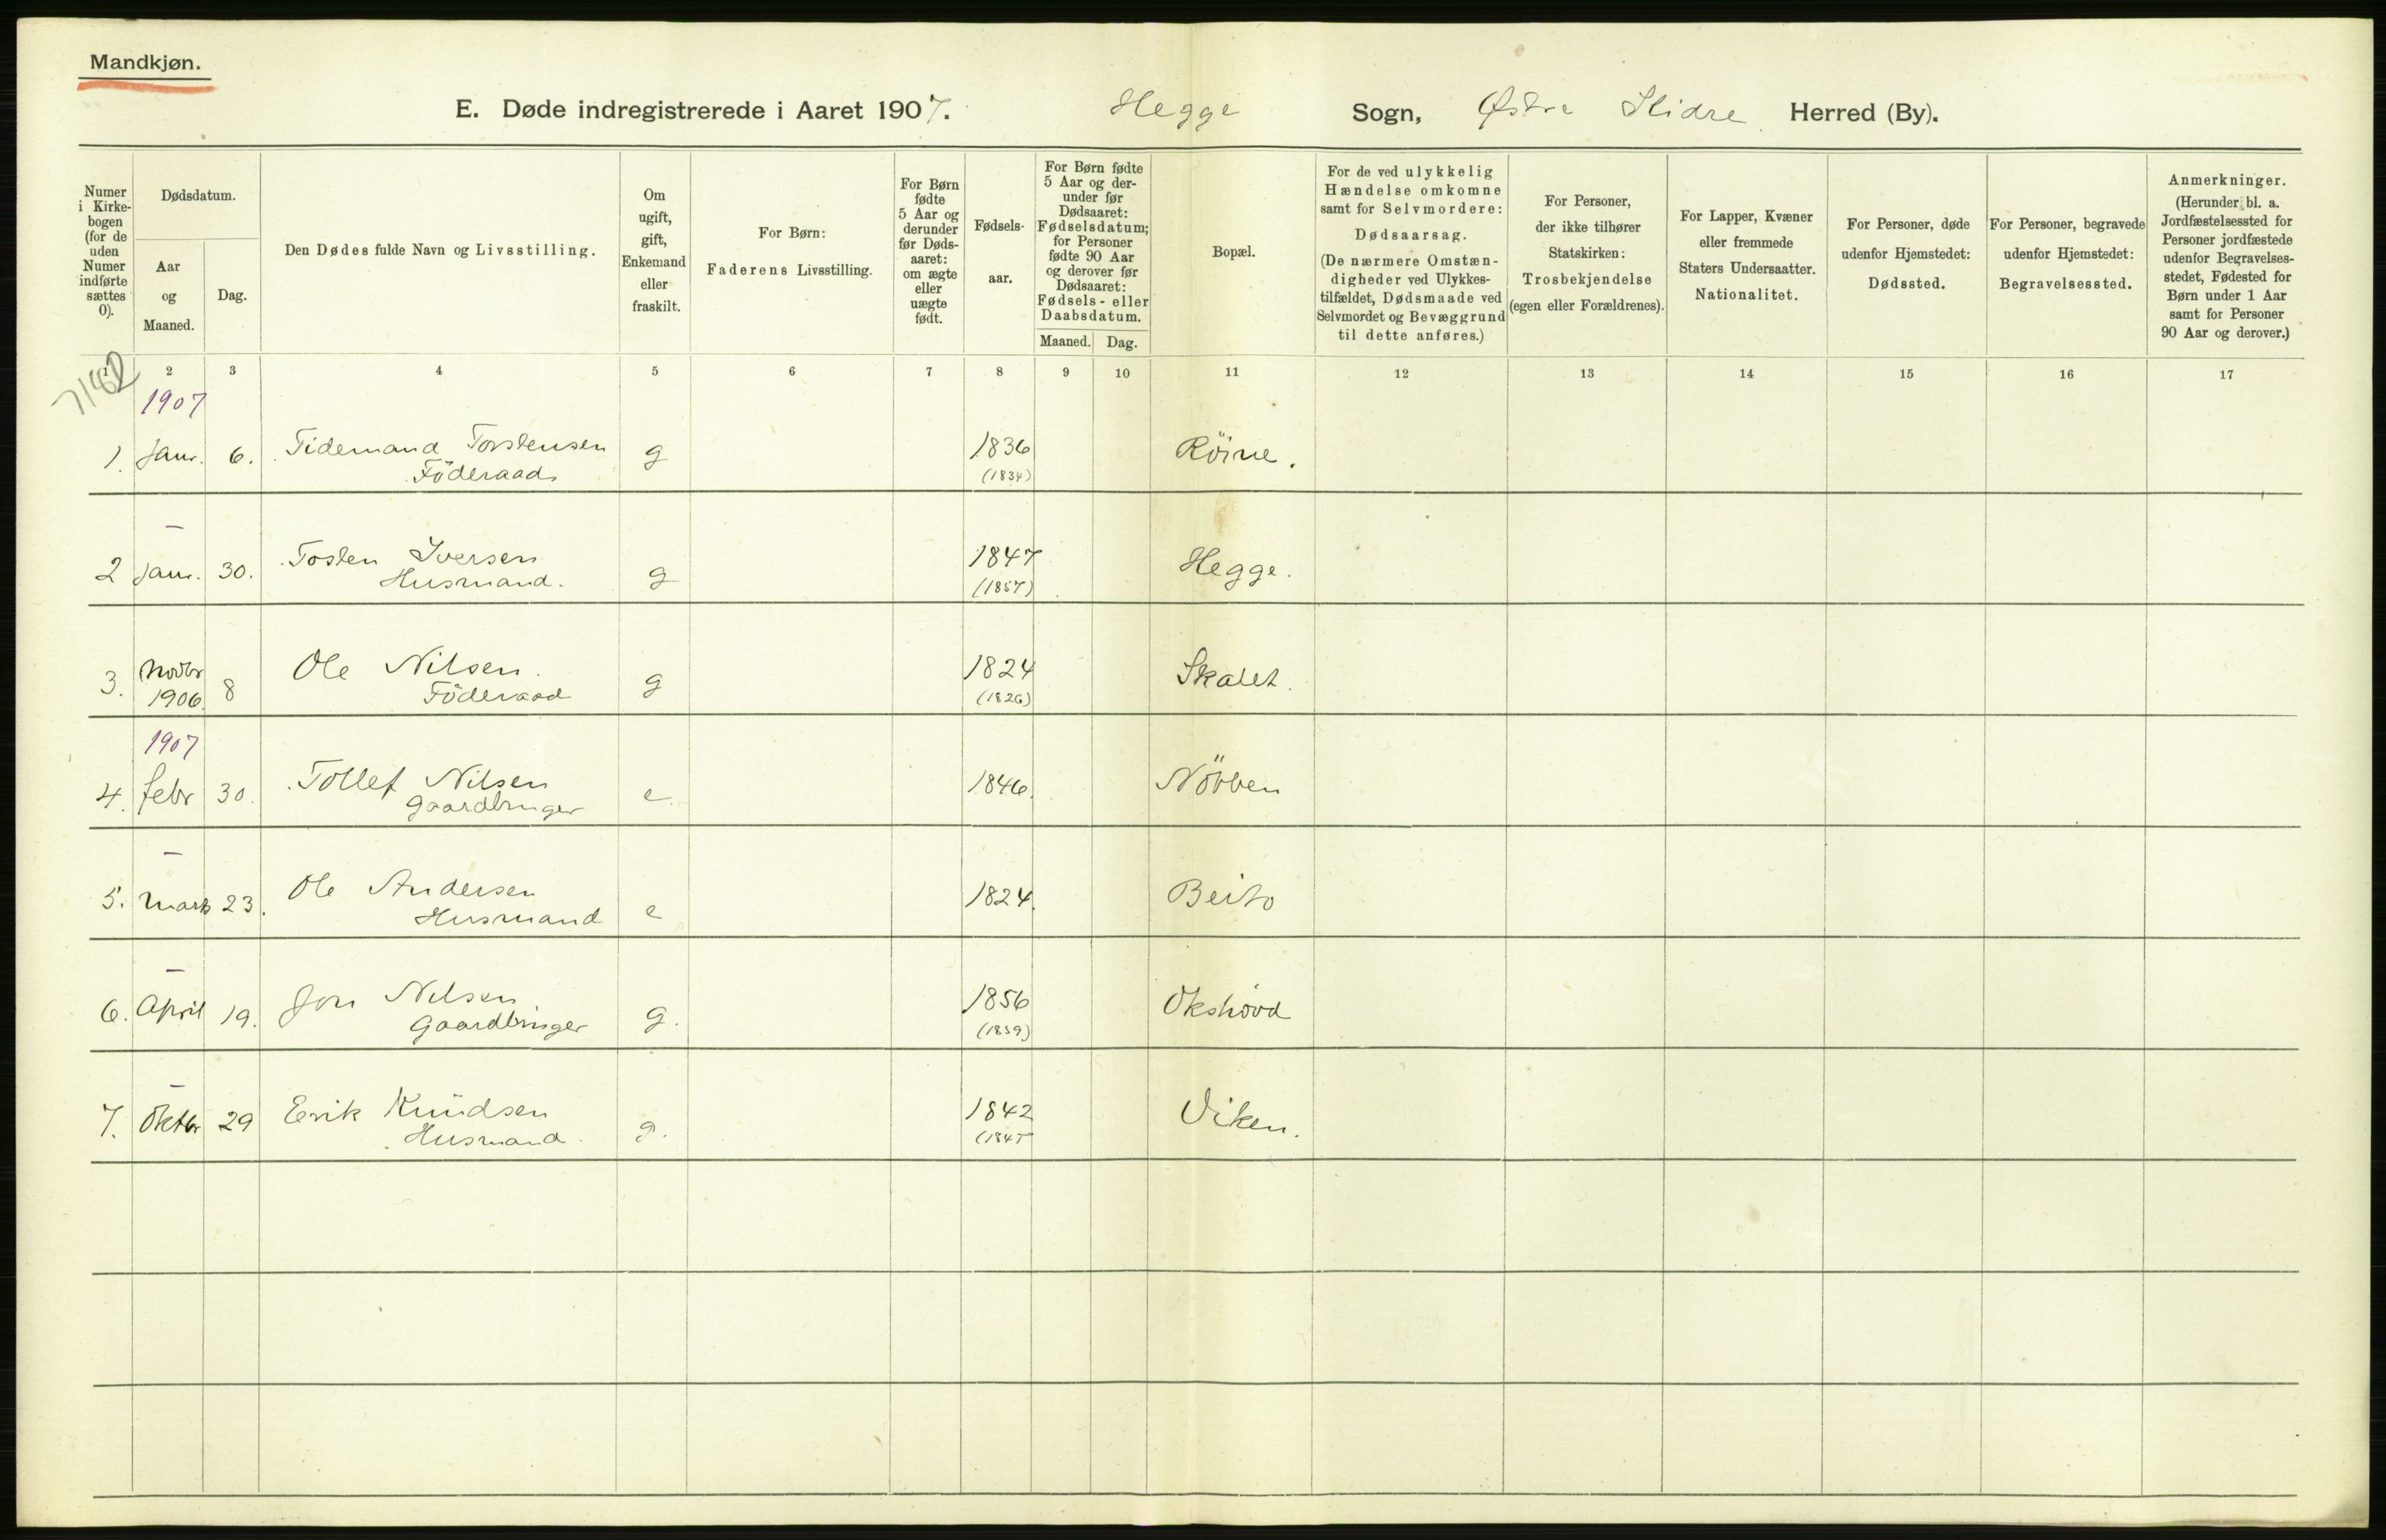 Mandkjøn.
E. Døde indregistrerede i Aaret 1907. Hegge Sogn, Østre Slidre Herred (By).
Numer i Kirke-bogen (for de uden Numer indførte sættes 0).
Dødsdatum.
Aar og Maaned.
Dag.
Den Dødes fulde Navn og Livsstilling.
Om ugift, gift, Enkemand eller fraskilt.
For Børn: Faderens Livsstilling.
For Børn fødte 5 Aar og derunder før Døds-aaret: om ægte eller uægte født.
Fødsels-aar.
For Børn fødte 5 Aar og der-under før Dødsaaret: Fødselsdatum; for Personer fødte 90 Aar og derover før Dødsaaret: Fødsels- eller Daabsdatum.
Maaned. Dag.
Bopæl.
For de ved ulykkelig Hændelse omkomne samt for Selvmordere: Dødsaarsag. (De nærmere Omstæn-digheder ved Ulykkes-tilfældet, Dødsmaade ved Selvmordet og Bevæggrund til dette anføres.)
For Personer, der ikke tilhører Statskirken: Trosbekjendelse (egen eller Forældrenes).
For Lapper, Kvæner eller fremmede Staters Undersaatter. Nationalitet.
For Personer, døde udenfor Hjemstedet: Dødssted.
For Personer, begravede udenfor Hjemstedet: Begravelsessted.
Anmerkninger. (Herunder bl. a. Jordfæstelsessted for Personer jordfæstede udenfor Begravelses-stedet, Fødested for Børn under 1 Aar samt for Personer 90 Aar og derover.)
1 2 3 4 5 6 7 8 9 10 11 12 13 14 15 16 17
1907
1. Janr. 6. Tidemand Torstensen g 1836 Röine.
Föderaads (1834)
–
2 Janr. 30. Tosten Iversen g 1847 Hegge.
Husmand. (1857)
3. Novbr 1906. 8 Ole Nilsen. g 1824 Skalet.
Föderaad (1826)
1907
4. febr 30. Tollef Nilsen e. 1846. Nöbben
Gaardbruger
–
5. Marts 23. Ole Andersen e 1824. Beito
Husmand
–
6. April 19. Jon Nilsen g. 1856 Okshovd
Gaardbruger (1859)
–
7. Oktbr 29 Erik Knudsen g. 1842 Viken.
Husmand. (1845